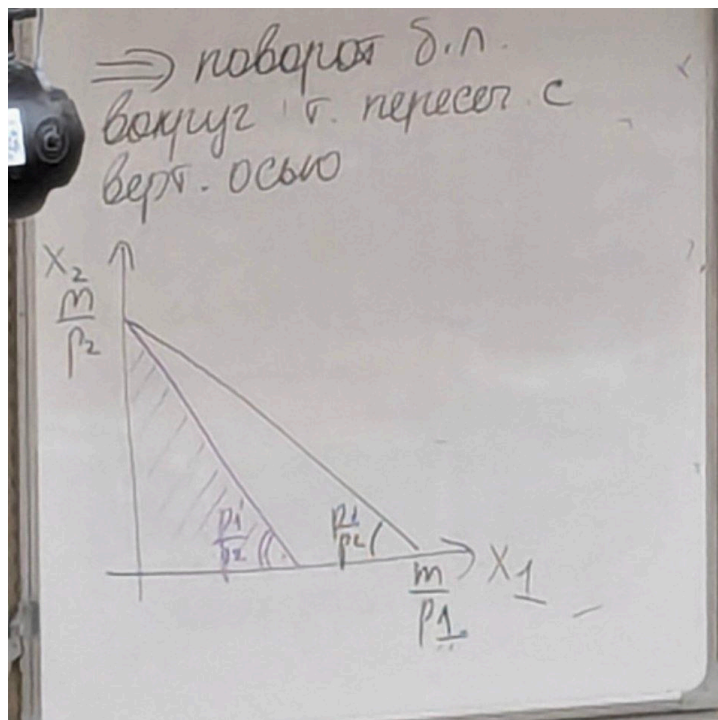 ⇒ поворот б.л.
вокруг т. пересеч. с
верт. осью
x₂
m/p₂
p₁'/p₂
p₁/p₂
x₁
m/p₁